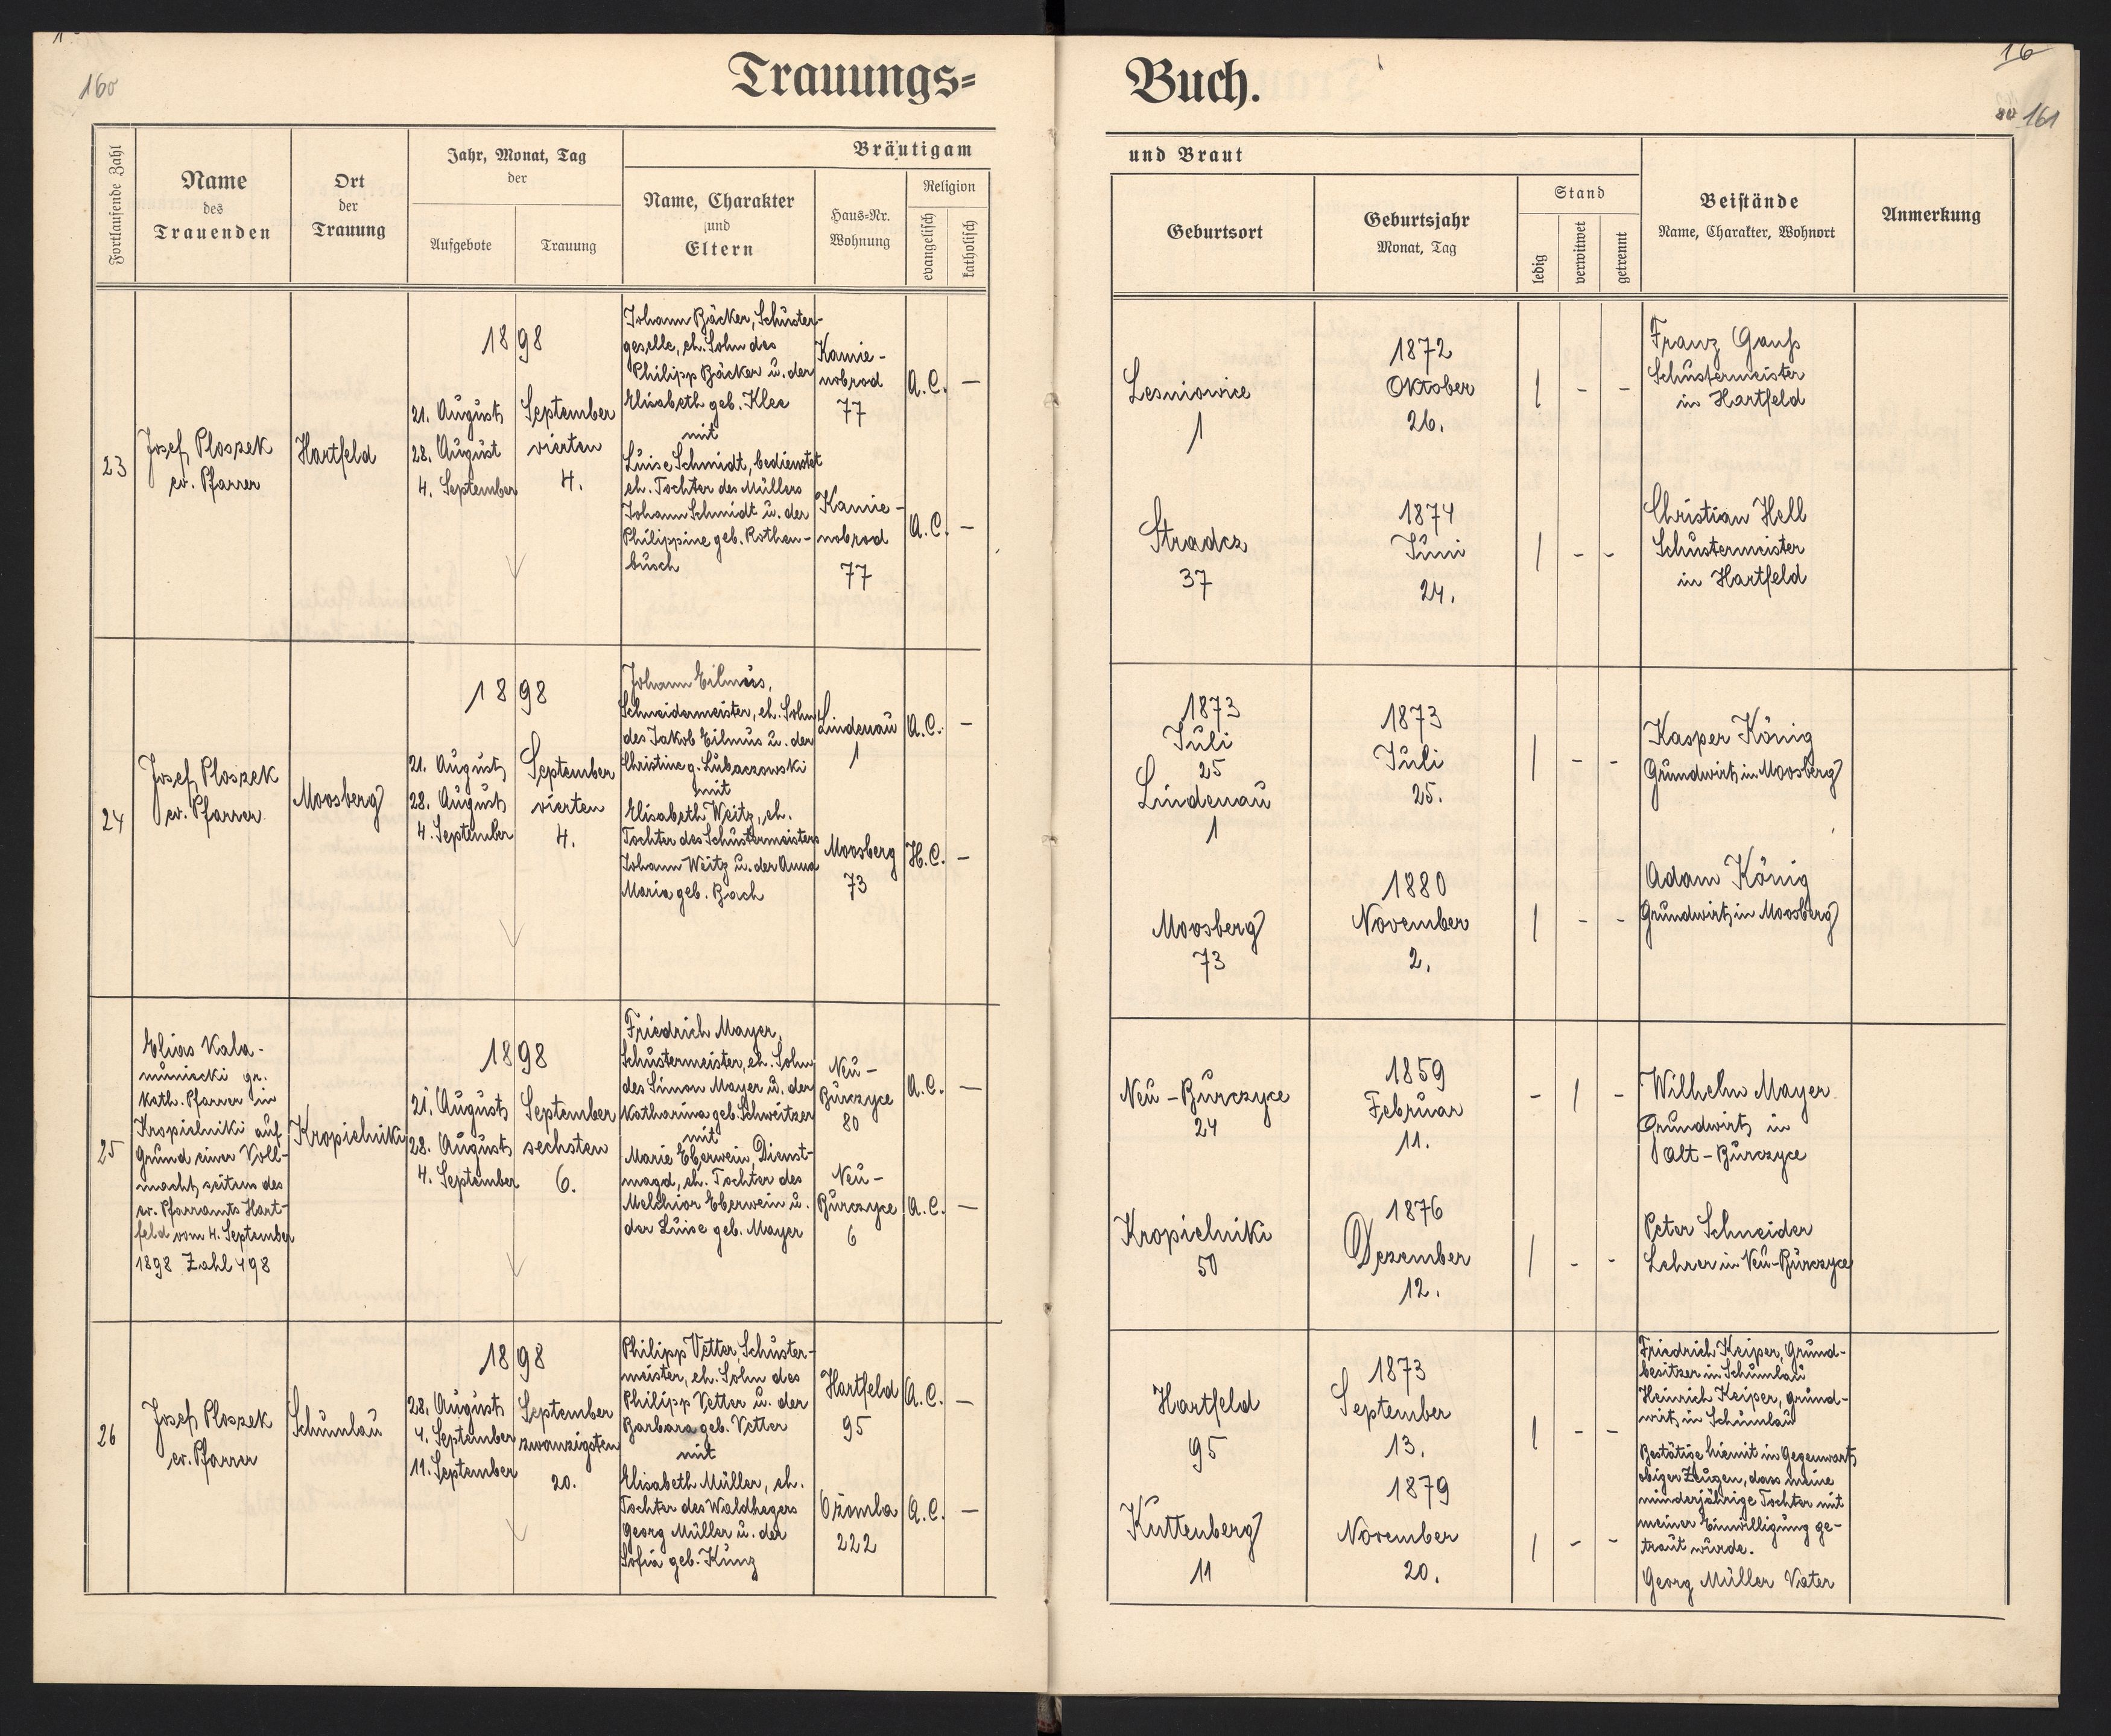 160
Trauungs=
Fortlaufende Zahl
Name
des
Trauenden
Ort
der
Trauung
Jahr, Monat, Tag
der
Aufgebote
Trauung
Bräutigam
Name, Charakter
und
Eltern
Haus=Nr.
Wohnung
Religion
evangelisch
katholisch
23
Josef Ploszek
ev. Pfarrer
Hartfeld
1898
21. August
28. August
4. September
September
vierten
4.
Johann Bäcker, Schuster-
geselle, eh. Sohn des
Philipp Bäcker u. der
Elisabeth geb. Klee
mit
Luise Schmidt, bedienstet
eh. Tochter des Müllers
Johann Schmidt u. der
Philippine geb. Rothen-
busch
Kamie-
nobrod
77
A.C. —
Kamie-
nobrod
77
A.C. —
24
Josef Ploszek
ev. Pfarrer
Moosberg
1898
21. August
28. August
4. September
September
vierten
4.
Johann Eilmes,
Schneidermeister, eh. Sohn
des Jakob Eilmus u. der
Christine g. Lubaczowski
mit
Elisabeth Weitz, eh.
Tochter des Schustermeisters
Johann Weitz u. der Anna
Maria geb. Bach
Lindenau
1
A.C. —
Moosberg
73
H.C. —
25
Elias Kala-
muniecki gr.
kath. Pfarrer in
Kropielniki auf
Grund einer Voll-
macht seitens des
ev. Pfarramts Hart-
feld vom 4. September
1898 Zahl 498
Kropielniki
1898
21. August
28. August
4. September
September
sechsten
6.
Friedrich Mayer,
Schustermeister, eh. Sohn
des Simon Mayer u. der
Katharina geb. Schweitzer
mit
Marie Eberwein, Dienst-
magd, eh. Tochter des
Melchior Eberwein u.
der Luise geb. Mayer
Neu-
Burczyce
80
A.C. —
Neu-
Burczyce
6
A.C. —
26
Josef Ploszek
ev. Pfarrer
Schumlau
1898
28. August
4. September
11. September
September
zwanzigsten
20.
Philipp Vetter, Schuster-
meister, eh. Sohn des
Philipp Vetter u. der
Barbara geb. Vetter
mit
Elisabeth Müller, eh.
Tochter des Waldhegers
Georg Müller u. der
Sofia geb. Kunz
Hartfeld
95
A.C. —
Ożomla
222
A.C. —
16
161
Buch.
und Braut
Geburtsort
Geburtsjahr
Monat, Tag
Stand
ledig
verwitwet
getrennt
Beistände
Name, Charakter, Wohnort
Anmerkung
Lesniowice
1
1872
Oktober
26.
1 - -
Franz Gauß
Schustermeister
in Hartfeld
Stradcz
37
1874
Juni
24.
1 - -
Christian Hell
Schustermeister
in Hartfeld
1873
Juli
25
Lindenau
1
1873
Juli
25.
1 - -
Kasper König
Grundwirt in Moosberg
Moosberg
73
1880
November
2.
1 - -
Adam König
Grundwirt in Moosberg
Neu-Burczyce
24
1859
Februar
11.
- 1 -
Wilhelm Mayer
Grundwirt in
Alt-Burczyce
Kropielniki
50
1876
Dezember
12.
1 - -
Peter Schneider
Lehrer in Neu-Burczyce
Hartfeld
95
1873
September
13.
1 - -
Friedrich Keiper, Grund-
besitzer in Schumlau
Heinrich Keiper, Grund-
wirt in Schumlau
Kuttenberg
11
1879
November
20.
1 - -
Bestätige hiemit in Gegenwart
obiger Zeugen, dass meine
minderjährige Tochter mit
meiner Einwilligung ge-
traut wurde.
Georg Müller Vater